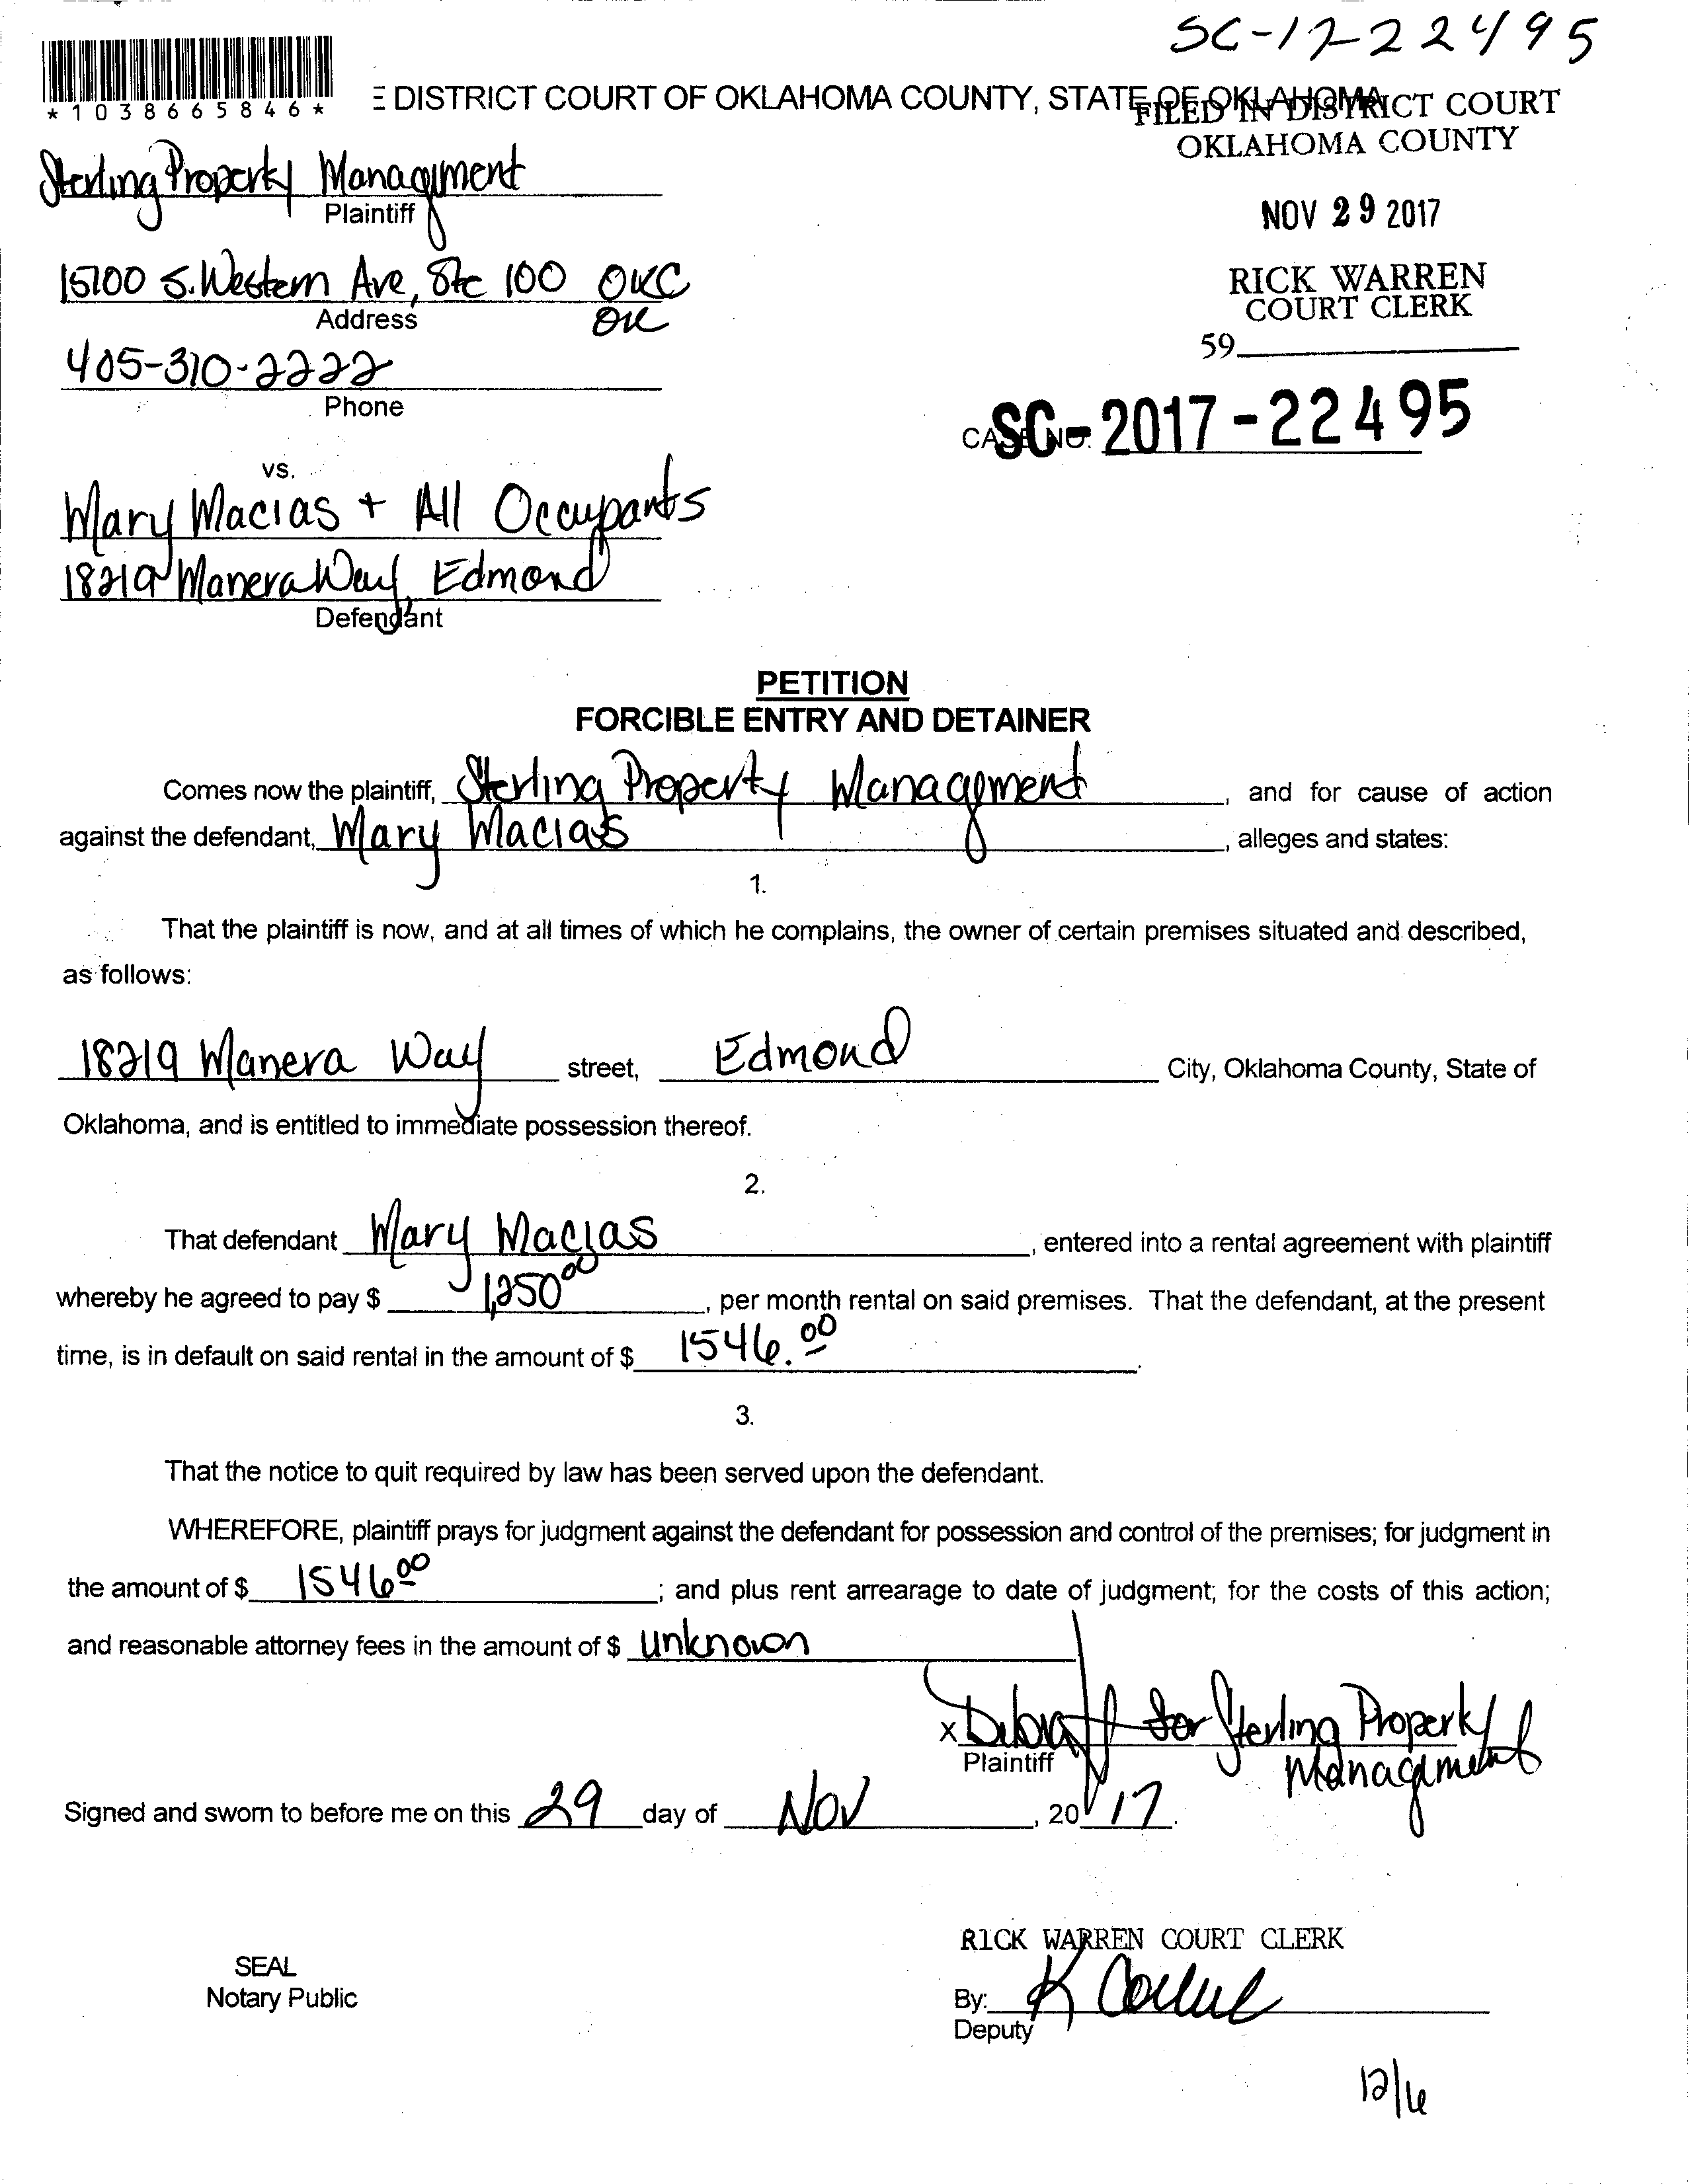 SC-17-22495
*1038665846*
E DISTRICT COURT OF OKLAHOMA COUNTY, STATE OF OKLAHOMA
FILED IN DISTRICT COURT
OKLAHOMA COUNTY
Sterling Property Management
Plaintiff
NOV 29 2017
15700 S. Western Ave, Ste 100 OKC
OK
Address
RICK WARREN
COURT CLERK
59
405-310-2222
Phone
CASE NO. SC-2017-22495
vs.
Mary Macias + All Occupants
18219 Manera Way, Edmond
Defendant
PETITION
FORCIBLE ENTRY AND DETAINER
Comes now the plaintiff, Sterling Property Management, and for cause of action
against the defendant, Mary Macias, alleges and states:
1.
That the plaintiff is now, and at all times of which he complains, the owner of certain premises situated and described,
as follows:
18219 Manera Way street, Edmond City, Oklahoma County, State of
Oklahoma, and is entitled to immediate possession thereof.
2.
That defendant Mary Macias, entered into a rental agreement with plaintiff
whereby he agreed to pay $ 1,250 00, per month rental on said premises. That the defendant, at the present
time, is in default on said rental in the amount of $ 1546.00.
3.
That the notice to quit required by law has been served upon the defendant.
WHEREFORE, plaintiff prays for judgment against the defendant for possession and control of the premises; for judgment in
the amount of $ 1546 00; and plus rent arrearage to date of judgment; for the costs of this action;
and reasonable attorney fees in the amount of $ unknown
x for Sterling Property
Management
Plaintiff
Signed and sworn to before me on this 29 day of Nov, 2017.
RICK WARREN COURT CLERK
SEAL
Notary Public
By: K
Deputy
12/6